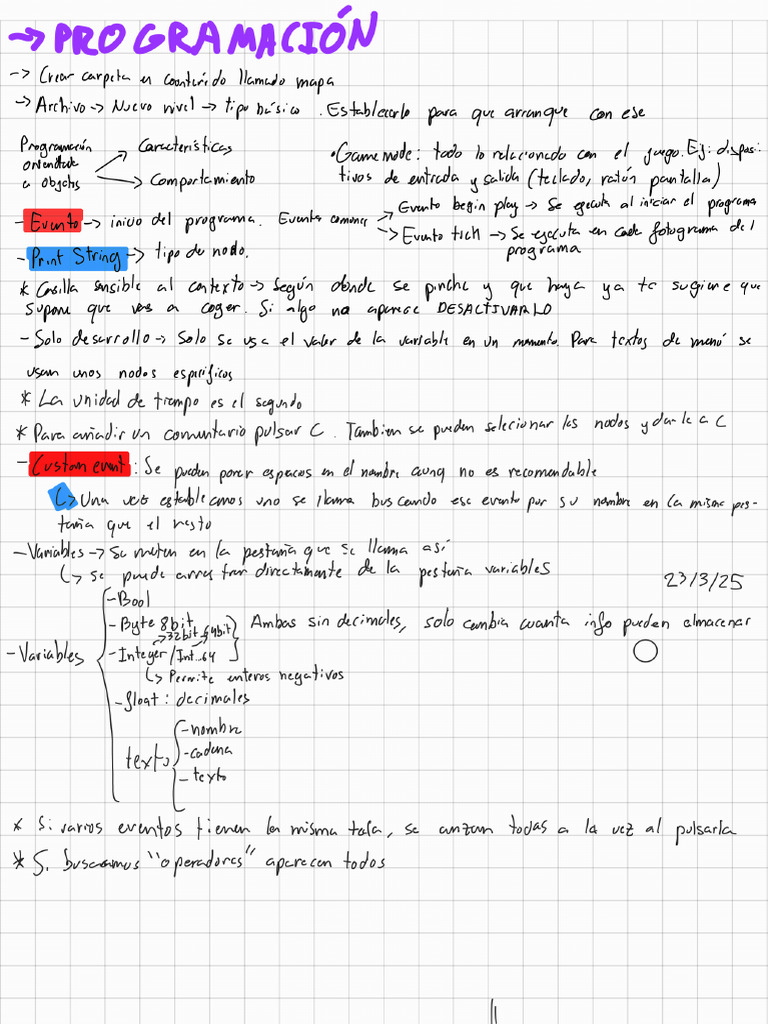 → PROGRAMACIÓN
-> Crear carpeta en contenido llamado mapa
-> Archivo -> Nuevo nivel -> tipo básico. Establecerlo para que arranque con ese
Programación orientada a objetos
Características
Comportamiento
• Gamemode: todo lo relacionado con el juego. Ej: disposi-
tivos de entrada y salida (teclado, ratón pantalla)
- Evento -> inicio del programa. Eventos comunes
Evento begin play -> Se ejecuta al iniciar el programa
-> Evento tick -> Se ejecuta en cada fotograma del
programa
- Print String -> tipo de nodo.
* Casilla sensible al contexto -> Según donde se pinche y que haya ya te sugiere que
supone que vas a coger. Si algo no aparece DESACTIVARLO
- Solo desarrollo -> Solo se usa el valor de la variable en un momento. Para textos de menú se
usan unos nodos específicos
* La unidad de tiempo es el segundo
* Para añadir un comentario pulsar C. Tambien se pueden selecionar los nodos y darle a C
- Custom event: Se pueden poner espacios en el nombre aunq no es recomendable
Una vez establecemos uno se llama buscando ese evento por su nombre en la misma pes-
taña que el resto
- Variables -> Se meten en la pestaña que se llama así
se puede arrastrar directamente de la pestaña variables
23/3/25
- Variables
- Bool
- Byte 8bit
->32bit 64bit
- Integer/Int..64
Ambas sin decimales, solo cambia cuanta info pueden almacenar
Permite enteros negativos
- float: decimales
texto
- nombre
- cadena
- texto
* Si varios eventos tienen la misma tecla, se lanzan todas a la vez al pulsarla
* Si buscamos "operadores" aparecen todos